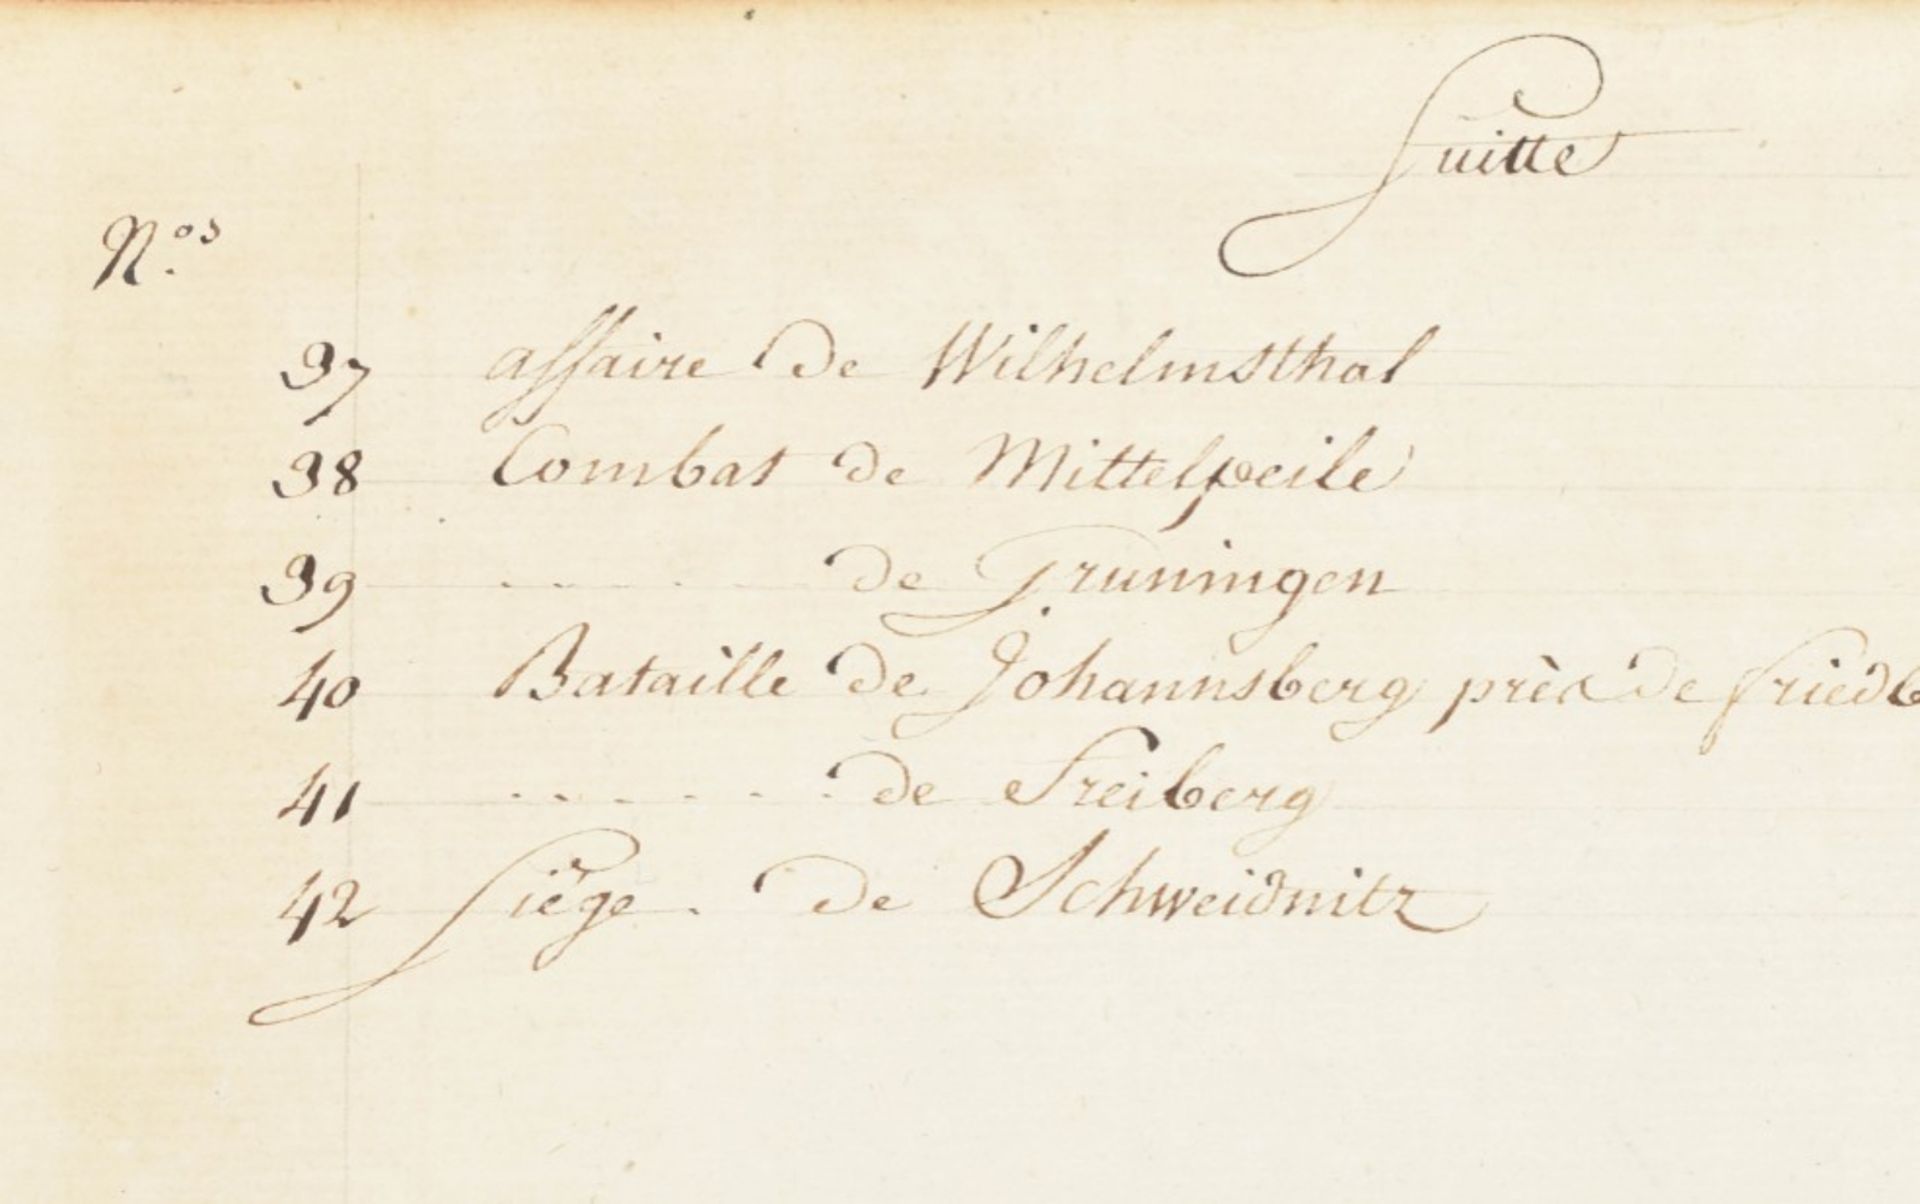 Suitte
N.os
37 affaire de Wilhelmsthal
38 Combat de Mittelpeile
39 ...... de Gruningen
40 Bataille de Johannsberg près de friedb
41 ...... de Freiberg
42 Siège . de Schweidnitz